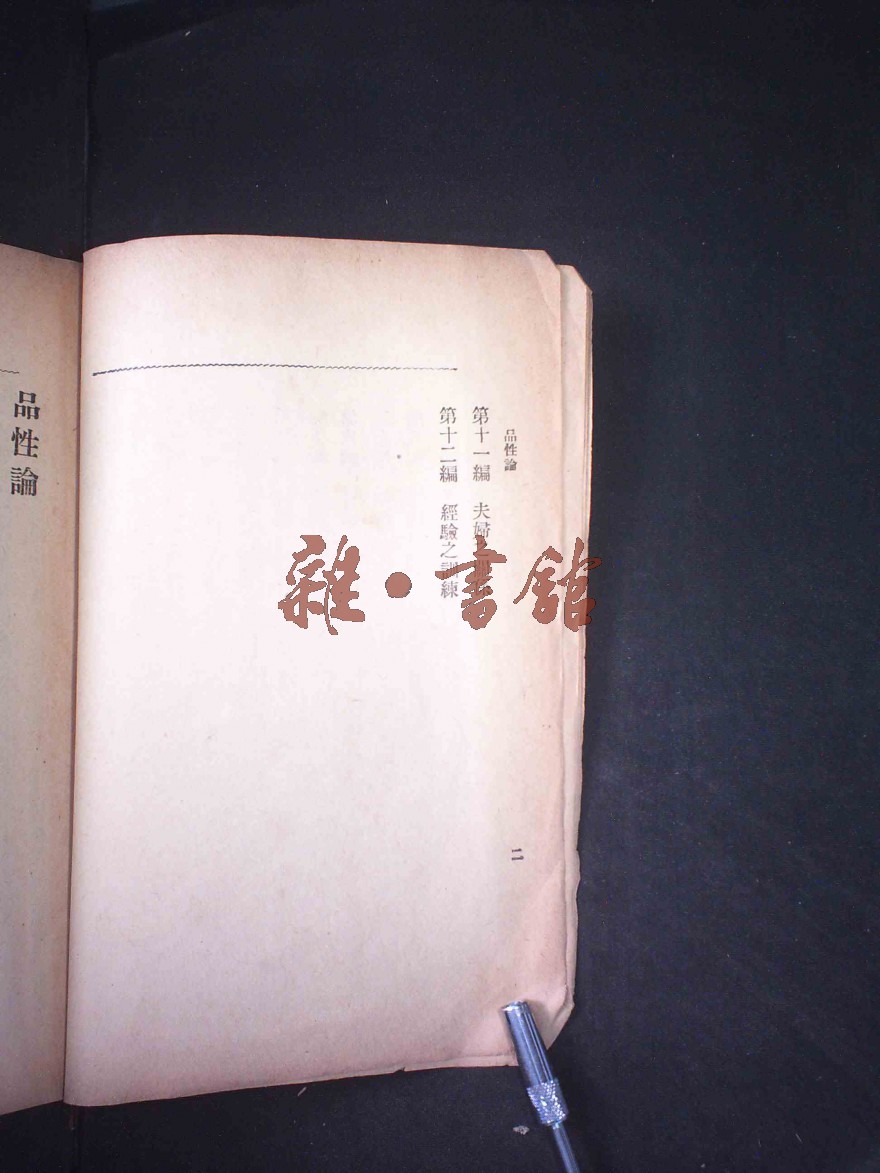 品性論
第十一編　夫婦之
第十二編　經驗之訓練
二
品性論
雜・書館